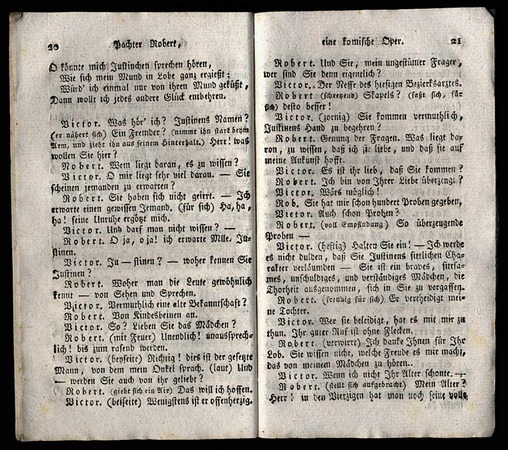 20 Pachter Robert,
O könnte mich Justinchen sprechen hören,
Wie sich mein Mund in Lobe ganz ergießt;
Würd' ich einmal nur von ihrem Mund geküßt,
Dann wollt ich jedes andre Glück entbehren.
Victor. Was hör' ich? Justinens Namen?
(er nähert sich) Ein Fremder? (nimmt ihn starr beym
Arm, und zieht ihn aus seinem Hinterhalt) Herr! was
wollen Sie hier?
Robert. Wem liegt daran, es zu wissen?
Victor. O mir liegt sehr viel daran. — Sie
scheinen jemanden zu erwarten?
Robert. Sie haben sich nicht geirrt. — Ich
erwarte einen gewissen Jemand. (für sich) Ha, ha,
ha! seine Unruhe ergözt mich.
Victor. Und darf man nicht wissen? —
Robert. O ja, o ja! ich erwarte Mlle. Ju-
stinen.
Victor. Ju — stinen? — woher kennen Sie
Justinen?
Robert. Woher man die Leute gewöhnlich
kennt — von Sehen und Sprechen.
Victor. Vermuthlich eine alte Bekanntschaft?
Robert. Von Kindesbeinen an.
Victor. So? Lieben Sie das Mädchen?
Robert. (mit Feuer) Unendlich! unaussprech-
lich! bis zum rasend werden.
Victor. (beyseite) Richtig! dies ist der gesetzte
Mann, von dem mein Onkel sprach. (laut) Und
— werden Sie auch von ihr geliebt?
Robert. (giebt sich ein Air) Das will ich hoffen.
Victor. (beiseite) Wenigstens ist er offenherzig.
eine komische Oper. 21
Robert. Und Sie, mein ungestümer Frager,
wer sind Sie denn eigentlich?
Victor. Der Neffe des hiesigen Bezierksarztes.
Robert (schreyend) Skapels? (faßt sich, für
sich) desto besser!
Victor. (zornig) Sie kommen vermuthlich,
Justinens Hand zu begehren?
Robert. Genung der Fragen. Was liegt dar-
on, zu wissen, daß ich sie liebe, und daß sie auf
meine Ankunft hofft.
Victor. Es ist ihr lieb, daß Sie kommen?
Robert. Ich bin von Ihrer Liebe überzeugt?
Victor. Wärs möglich!
Rob. Sie hat mir schon hundert Proben gegeben,
Victor. Auch schon Proben?
Robert. (voll Empfindung) So überzeugende
Proben —
Victor. (heftig) Halten Sie ein! — Ich werde
es nicht dulden, daß Sie Justinens sittlichen Cha-
rakter verläumden — Sie ist ein braves, sittsa-
mes, unschuldiges, und verständiges Mädchen, die
Thorheit ausgenommen, sich in Sie zu vergaffen.
Robert. (freudig für sich) Er vertheidigt mei-
ne Tochter.
Victor. Wer sie beleidigt, hat es mit mir zu
thun. Ihr guter Ruf ist ohne Flecken.
Robert. (verwirrt) Ich danke Ihnen für Ihr
Lob. Sie wissen nicht, welche Freude es mir macht,
das von meinem Mädchen zu hören.
Victor. Wenn ich nicht Ihr Alter schonte. —
Robert. (stellt sich aufgebracht) Mein Alter?
Herr! in den Vierzigen hat man noch seine volle